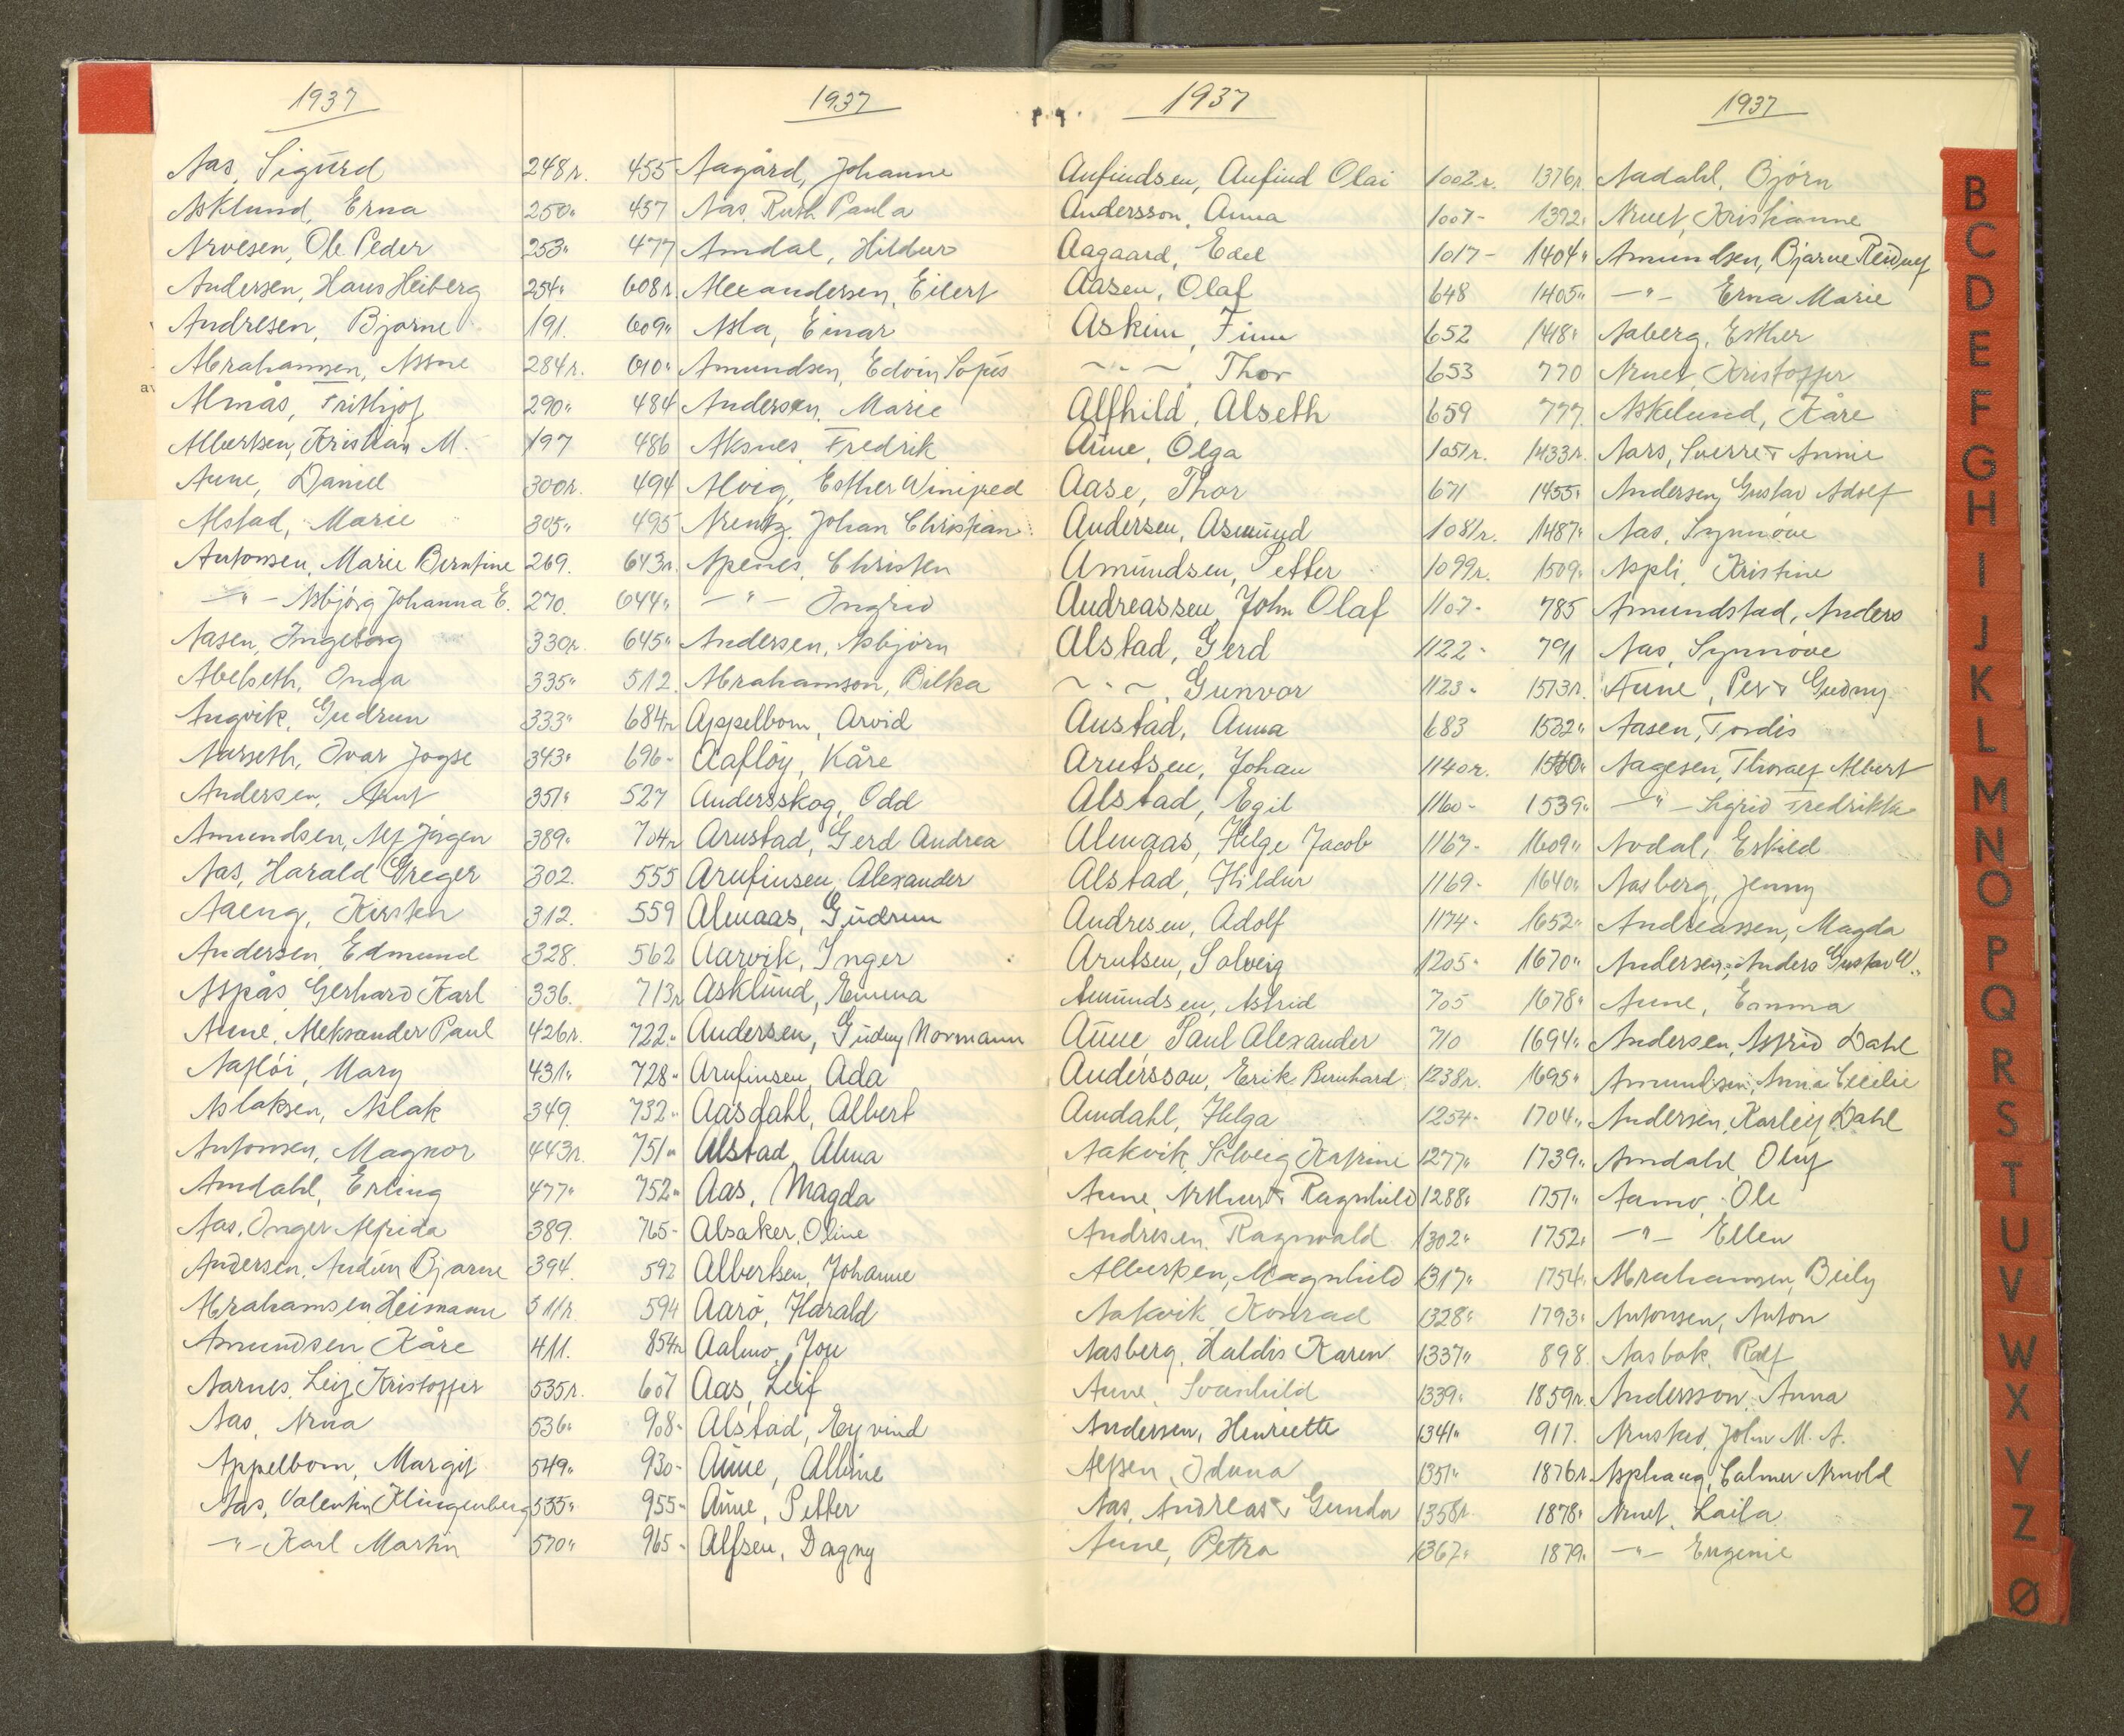 1937
Aas, Sigurd 248 r.
Asklund, Erna 250 "
Arvesen, Ole Peder 253 "
Andersen, Hans Heiberg 254 "
Andresen, Bjarne 191.
Abrahamsen, Asne 284 r.
Almås, Frithjof 290 "
Albertsen, Kristian M. 197
Aune, Daniel 300 r.
Alstad, Marie 305 "
Antonsen, Marie Berntine 269.
— " — Asbjørg Johanna E. 270.
Aasen, Ingeborg 330 r.
Abelseth, Inga 335 "
Angvik, Gudrun 333 "
Aarseth, Ivar 343 "
Andersen, Arnt 351 "
Amundsen, Alf Jørgen 389 "
Aas, Harald Greger 302.
Aaeng, Kirsten 312.
Andersen, Edmund 328.
Aspås, Gerhard Karl 336.
Aune, Aleksander Paul 426 r.
Aafløi, Mary 431 "
Aslaksen, Aslak 349.
Antonsen, Magnor 443 r.
Amdahl, Erling 477 "
Aas, Inger Alfrida 389.
Andersen, Audun Bjarne 394.
Abrahamsen, Heimann 511 r.
Amundsen Kåre 411.
Aarnes, Leif Kristoffer 535 r.
Aas, Arna 536 "
Appelbom, Margit 549 "
Aas, Valentin Klingenberg 555 "
— " — Karl Martin 570 "
1937
455 Aagård, Johanne
457 Aas, Ruth Paula
477 Amdal, Hildur
608 r. Alexandersen, Eilert
609 " Asla, Einar
610 " Amundsen, Edvin
484 Andersen, Marie
486 Aksnes, Fredrik
494 Alvig, Esther Winifred
495 Arentz, Johan Christian
643 r. Apenes, Christen
644 " — " — Ingrid
645 " Andersen, Asbjørn
512. Abrahamson, Bilka
684 r. Appelbom, Arvid
696 - Aafløy, Kåre
527 Andersskog, Odd
704 r. Arnstad, Gerd Andrea
555 Arnfinsen, Alexander
559 Almaas, Gudrun
562 Aarvik, Inger
713 r. Asklund, Emma
722 " Andersen, Gudny Normann
728 - Arnfinsen, Ada
732 - Aasdahl, Albert
751 " Alstad, Alma
752 " Aas, Magda
765 - Alsaker, Oline
592 Albertsen, Johanne
594 Aarö, Harald
854 r. Aalmo, Jon
607 Aas, Leif
908 - Alstad, Eyvind
930 - Aune, Albine
955 - Aune, Petter
965 - Alfsen, Dagny
1937
Anfindsen, Anfind Olai 1002 r.
Andersson, Anna 1007 -
Aagaard, Edel 1017 -
Aasen, Olaf 648
Askim, Finn 652
~ " ~, Thor 653
Alfhild, Alseth 659
Aune, Olga 1051 r.
Aase, Thor 671
Andersen, Asmund 1081 r.
Amundsen, Petter 1099 r.
Andreassen, John Olaf 1107 -
Alstad, Gerd 1122 -
~ " ~, Gunvor 1123 -
Austad, Anna 683
Arntsen, Johan 1140 r.
Alstad, Egil 1160 -
Almaas, Helge Jacob 1167 -
Alstad, Hildur 1169 -
Andresen, Adolf 1174 -
Arntsen, Solveig 1205 -
Amundsen, Astrid 705
Aune, Paul Alexander 710
Andersson, Erik Bernhard 1238 r.
Amdahl, Helga 1254 -
Aakvik, Solveig Katrine 1277 "
Aune, Arthur & Ragnhild 1288 "
Andresen, Ragnvald 1302 "
Albertsen, Magnhild 1317 "
Aakvik, Konrad 1328 "
Aasberg, Haldis Karen 1337 "
Aune, Svanhild 1339 "
Andersen, Henriette 1341 "
Alfsen, Iduna 1351 "
Aas, Andreas & Gunda 1358 r.
Aune, Petra 1367 "
1937
1376 r. Aadahl, Bjørn
1372 " Arnet, Kristianne
1404 " Amundsen, Bjarne Reidulf
1405 " — " — Erna Marie
1418 " Aaberg, Esther
770 Arnet, Kristoffer
777. Askelund, Kåre
1433 r. Aars, Sverre & Annie
1455 " Andersen, Gustav Adolf
1487 " Aas, Synnøve
1509 " Aspli, Kristine
785 Amundstad, Anders
791 Aas, Synnøve
1513 r. Aune, Per & Gudny
1532 " Aasen, Tordis
Aagesen, Thoralf Albert
1539 " — " — Sigrid Fredrikke
1609 " Aodal, Eskild
1640 " Aasberg, Jenny
1652 " Andreassen, Magda
1670 " Andersen, Anders Gustav W.
1678 " Aune, Emma
1694 " Andersen, Astrid Dahl
1695 " Amundsen, Anna Cecilie
1704 " Andersen, Karleif Dahl
1739 " Amdahl, Oluf
1751 " Aamo, Ole
1752 " — " — Ellen
1754 " Abrahamsen, Beily
1793 " Antonsen, Anton
898. Aasbak, Ralf
1859 r. Andersson, Anna
917. Arnstad, John M. A.
1876 r. Asphaug, Calmer Arnold
1878 " Arnet, Laila
1879 " — " — Eugenie
B
C
D
E
F
G
H
I
J
K
L
M
N
O
P
Q
R
S
T
U
V
W
X
Y
Z
Ø